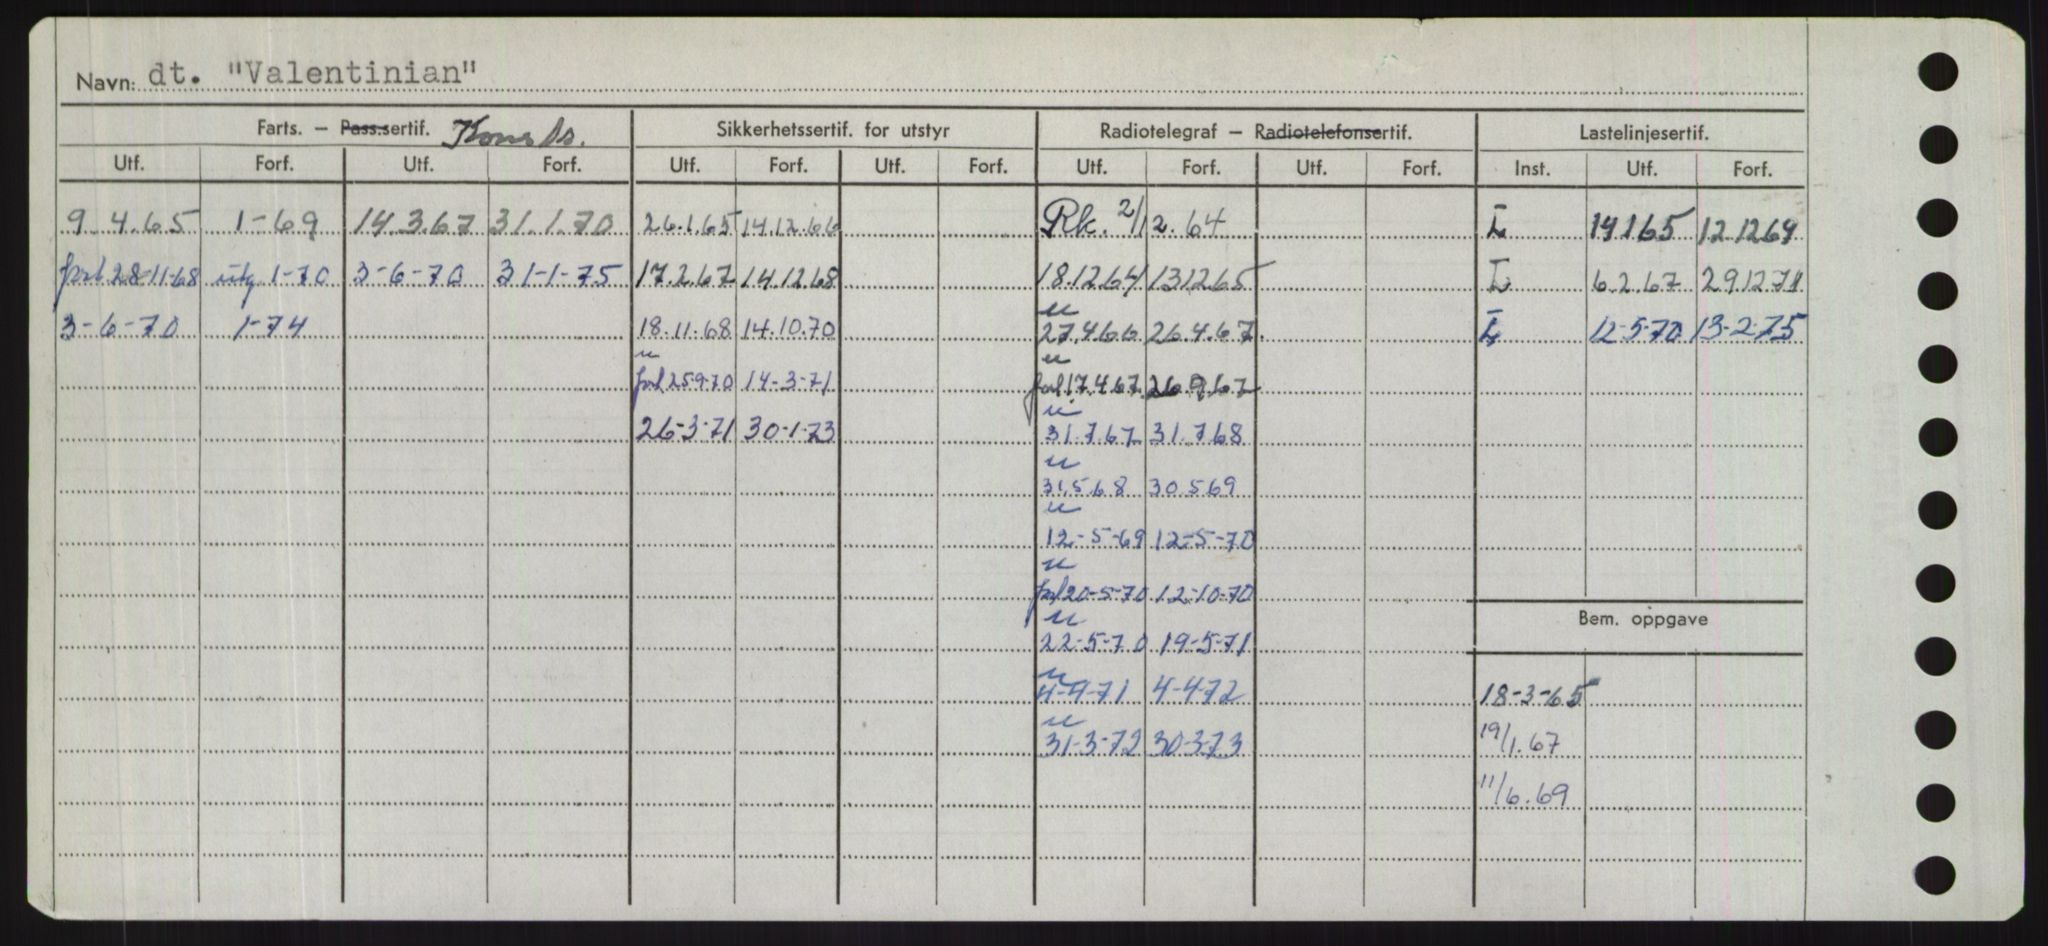 Navn: dt. "Valentinian"
Farts. – Pass.sertif. Sikkerhetssertif. for utstyr Radiotelegraf – Radiotelefonsertif. Lastelinjesertif.
Utf. Forf. Utf. Forf. Utf. Forf. Utf. Forf. Utf. Forf. Utf. Forf. Inst. Utf. Forf.
9.4.65 1-69 14.3.67 31.1.70 26.1.65 14.12.66 Rk. 2/12.64 L 14.1.65 12.12.69
forl. 28-11-68 utg. 1-70 3-6-70 31-1-75 17.2.67 14.12.68 18.12.64 13.12.65 L 6.2.67 29.12.71
3-6-70 1-74 18.11.68 14.10.70 27.4.66 26.4.67. L 12-5-70 13-2-75
forl 25.9.70 14-3-71 forl 17.4.67 26.9.67
26-3-71 30-1-73 31.7.67 31.7.68
31.5.68 30.5.69
12-5-69 12-5-70
forl 20-5-70 12-10-70
Bem. oppgave
22-5-70 19-5-71
4-4-71 4-4-72 18-3-65
31-3-72 30-3-73 19/1.67
11/6.69